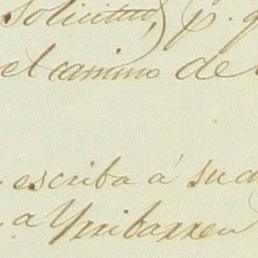 Solicitud, p. q
el camino de
escriba á su
a Yribarren